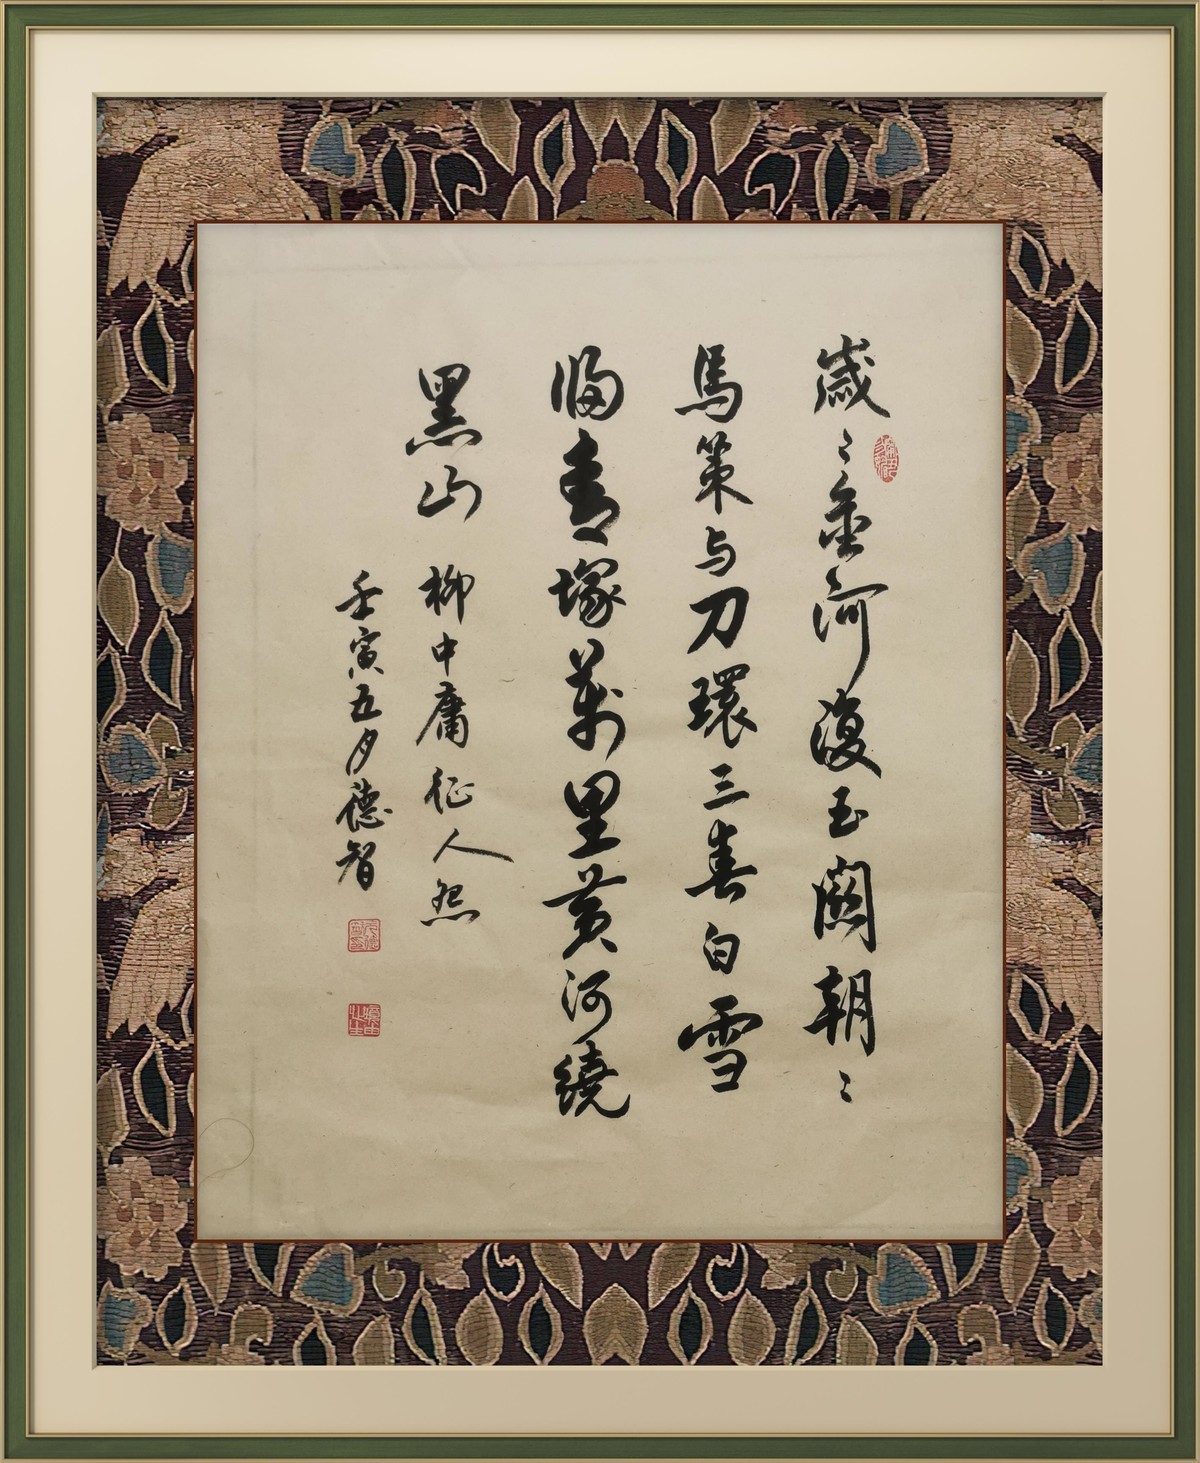 歲〻金河復玉關朝〻
馬策与刀環三春白雪
歸青塚萬里黃河繞
黑山 柳中庸 征人怨
壬寅五月德智